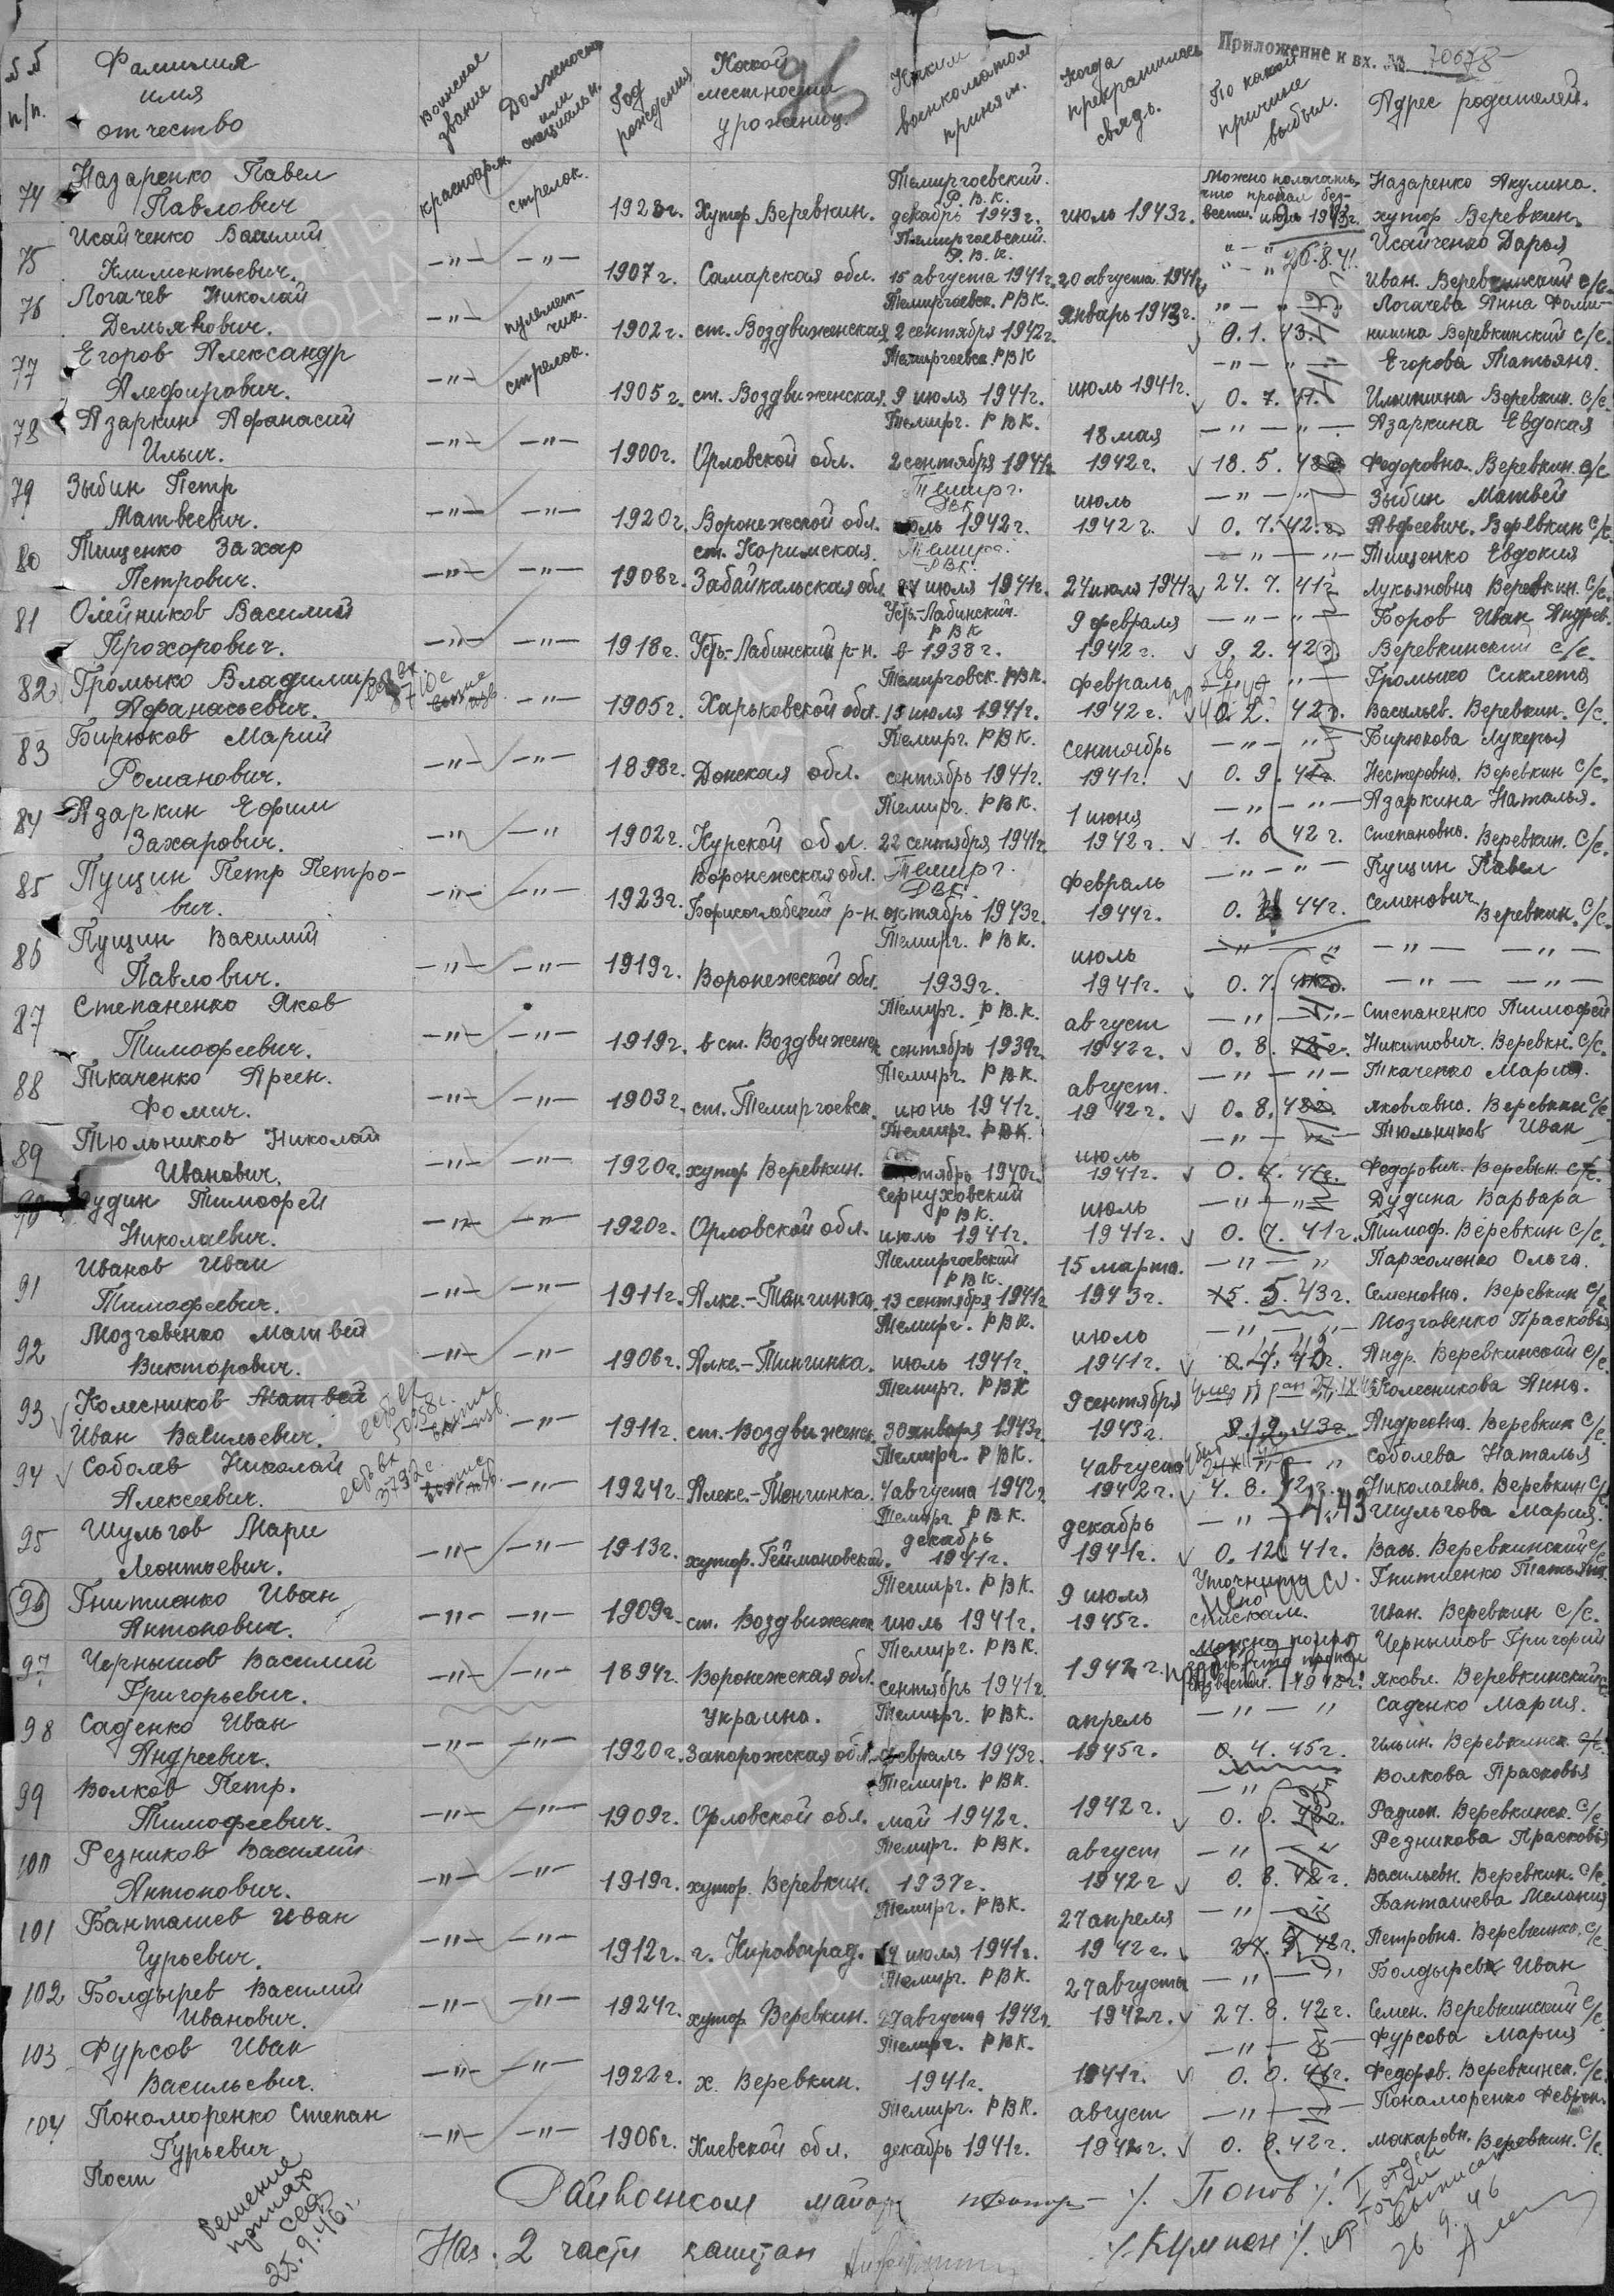 Приложение к вх. № 70678
96
№№ п/п.
Фамилия имя отчество
Военное звание
Должность или специальн.
Год рождения
Какой местности урожениц.
Каким военкоматом принят.
Когда прекратилась связь.
По какой причине выбыл.
Адрес родителей.
74 Назаренко Павел Павлович красноарм. стрелок. 1923г. Хутор Веревкин. Темиргоевский Р.В.К. декабрь 1943г. июль 1943г. Можно полагать, что пропал без вести. июль 1943г. Назаренко Акулина. хутор Веревкин.
75 Исайченко Василий Климентьевич. —"— —"— 1907г. Самарская обл. Темиргоевский Р.В.К. 15 августа 1941г. 20 августа 1941г. —"— 26.8.41. Исайченко Дарья Иван. Веревкинский с/с.
76 Логачев Николай Демьянович. —"— пулеметчик. 1902г. ст. Воздвиженская Темиргоевск. РВК. 2 сентября 1942г. Январь 1943г. —"— 0.1.43. Логачева Анна Фоминична Веревкинский с/с.
77 Егоров Александр Алефирович. —"— стрелок. 1905г. ст. Воздвиженская. Темиргоевск. РВК 9 июля 1941г. июль 1941г. —"— 0.7.41. Егорова Татьяна. Ильинична Веревкин. с/с.
78 Азаркин Афанасий Ильич. —"— —"— 1900г. Орловской обл. Темирг. РВК. 2 сентября 1941г. 18 мая 1942г. —"— 18.5.42 Азаркина Евдокия Федоровна. Веревкин. с/с
79 Зыбин Петр Матвеевич. —"— —"— 1920г. Воронежской обл. Темирг. РВК июль 1942г. июль 1942г. —"— 0.7.42. Зыбин Матвей Авдеевич. Веревкин с/с.
80 Тищенко Захар Петрович. —"— —"— 1908г. ст. Каримская. Забайкальская обл. Темирг. РВК. 24 июля 1941г. 24 июля 1941г. —"— 24.7.41г. Тищенко Евдокия Лукьяновна Веревкин. с/с.
81 Олейников Василий Прохорович. —"— —"— 1918г. Усть-Лабинский р-н. Усть-Лабинский. РВК в 1938г. 9 февраля 1942г. —"— 9.2.42 Боров Иван Андреев. Веревкинский с/с.
82 Громыко Владимир Афанасьевич. —"— 1905г. Харьковской обл. Темирговск. РВК. 15 июля 1941г. февраль 1942г. 0.2.42г. Громыко Сиклета Васильев. Веревкин. с/с.
83 Бирюков Марий Романович. —"— —"— 1898г. Донская обл. Темирг. РВК. сентябрь 1941г. сентябрь 1941г. —"— 0.9.41г. Бирюкова Лукерья Нестеровна. Веревкин с/с.
84 Азаркин Ефим Захарович. —"— —"— 1902г. Курской обл. Темирг. РВК. 22 сентября 1941г. 1 июня 1942г. —"— 1.6 42г. Азаркина Наталья. Степановна. Веревкин. с/с.
85 Пущин Петр Петрович. —"— —"— 1923г. Воронежская обл. Борисоглебский р-н. Темирг. РВК. октябрь 1943г. февраль 1944г. —"— 0. 44г. Пущин Павел Семенович Веревкин. с/с.
86 Пущин Василий Павлович. —"— —"— 1919г. Воронежской обл. Темирг. РВК. 1939г. июль 1941г. —"— 0.7. —"— —"—
87 Степаненко Яков Тимофеевич. —"— —"— 1919г. в ст. Воздвиженск Темирг. Р.В.К. сентябрь 1939г. август 1942г. —"— 0.8. Степаненко Тимофей Никитович. Веревкн. с/с.
88 Ткаченко Арсен. Фомич. —"— —"— 1903г. ст. Темиргоевск. Темирг. РВК. июнь 1941г. август. 1942г. —"— 0.8.42 Ткаченко Мария. Яковлевна. Веревкин с/с.
89 Тюльников Николай Иванович. —"— —"— 1920г. хутор Веревкин. Темирг. РВК. 1940г. июль 1941г. —"— 0.7.41г. Тюльников Иван Федорович. Веревкн. с/с.
90 Дудин Тимофей Николаевич. —"— —"— 1920г. Орловской обл. РВК. июль 1941г. июль 1941г. —"— 0.7.41г. Дудина Варвара Тимоф. Веревкин с/с.
91 Иванов Иван Тимофеевич. —"— —"— 1911г. Алке.-Тангинка. Темиргоевский РВК. 13 сентября 1941г. 15 марта. 1943г. —"— 15.5.43г. Пархоменко Ольга. Семеновна. Веревкин с/с
92 Мозговенко Матвей Викторович. —"— —"— 1906г. Алке.-Тингинка. Темирг. РВК. июль 1941г. июль 1941г. —"— Мозговенко Прасковья Андр. Веревкинский с/с
93 Колесников Матвей Иван Васильевич. —"— 1911г. ст. Воздвиженск. Темирг. РВК 30 января 1943г. 9 сентября 1943г. 43г. Колесникова Анна. Андреевна. Веревкин с/с.
94 Соболев Николай Алексеевич. —"— 1924г. Алеке.-Тенгинка. Темирг. РВК. 4 августа 1942г. 4 августа 1942г. 4.8.42г. Соболева Наталья Николаевна. Веревкин с/с
4.43
95 Шульгов Мари Леонтьевич. —"— —"— 1913г. хутор. Геймановский. Темирг. РВК. декабрь 1941г. декабрь 1941г. —"— 0.12.41г. Шульгова Мария. Вась. Веревкинский с/с
96 Гнитиенко Иван Антонович. —"— —"— 1909г. ст. Воздвиженск Темирг. РВК. июль 1941г. 9 июля 1945г. Уточнить по спискам. Гнитиенко Татьяна. Иван. Веревкин с/с.
97 Чернышов Василий Григорьевич. —"— —"— 1894г. Воронежская обл. Темирг. РВК. сентябрь 1941г. 1942г. Чернышов Григорий Яковл. Веревкинский
98 Саденко Иван Андреевич. —"— —"— 1920г. Украина. Запорожская обл. Темирг. РВК. февраль 1943г. апрель 1945г. —"— 0.4.45г. Саденко Мария. Ильин. Веревкинск. с/с.
99 Волков Петр. Тимофеевич. —"— —"— 1909г. Орловской обл. Темирг. РВК. май 1942г. 1942г. —"— 0.0.42г. Волкова Прасковья Радион. Веревкинск. с/с
100 Резников Василий Антонович. —"— —"— 1919г. хутор Веревкин. Темирг. РВК. 1937г. август 1942г —"— 0.8.42г. Резникова Прасковья Васильевн. Веревкин. с/с.
101 Банташев Иван Гурьевич. —"— —"— 1912г. г. Кировоград. Темирг. РВК. 14 июля 1941г. 27 апреля 1942г. —"— Банташева Мелания Петровна. Веревкинко. с/с
102 Болдырев Василий Иванович. —"— —"— 1924г. хутор Веревкин. Темирг. РВК. 27 августа 1942г. 27 августа 1942г. —"— 27.8.42г. Болдырев Иван Семен. Веревкинский с/с
103 Фурсов Иван Васильевич. —"— —"— 1922г. х. Веревкин. Темирг. РВК. 1941г. 1941г. —"— 0.0.41г. Фурсова Мария Федоров. Веревкинск. с/с.
104 Понаморенко Степан Гурьевич —"— —"— 1906г. Киевской обл. Темирг. РВК. декабрь 1941г. август 1942г. —"— 0.8.42г. Понаморенко Феврон. Макаровн. Веревкин. с/с.
Райвоенком майор /. Попов /.
Нач. 2 части капитан
25.9.46г.
26.9.46